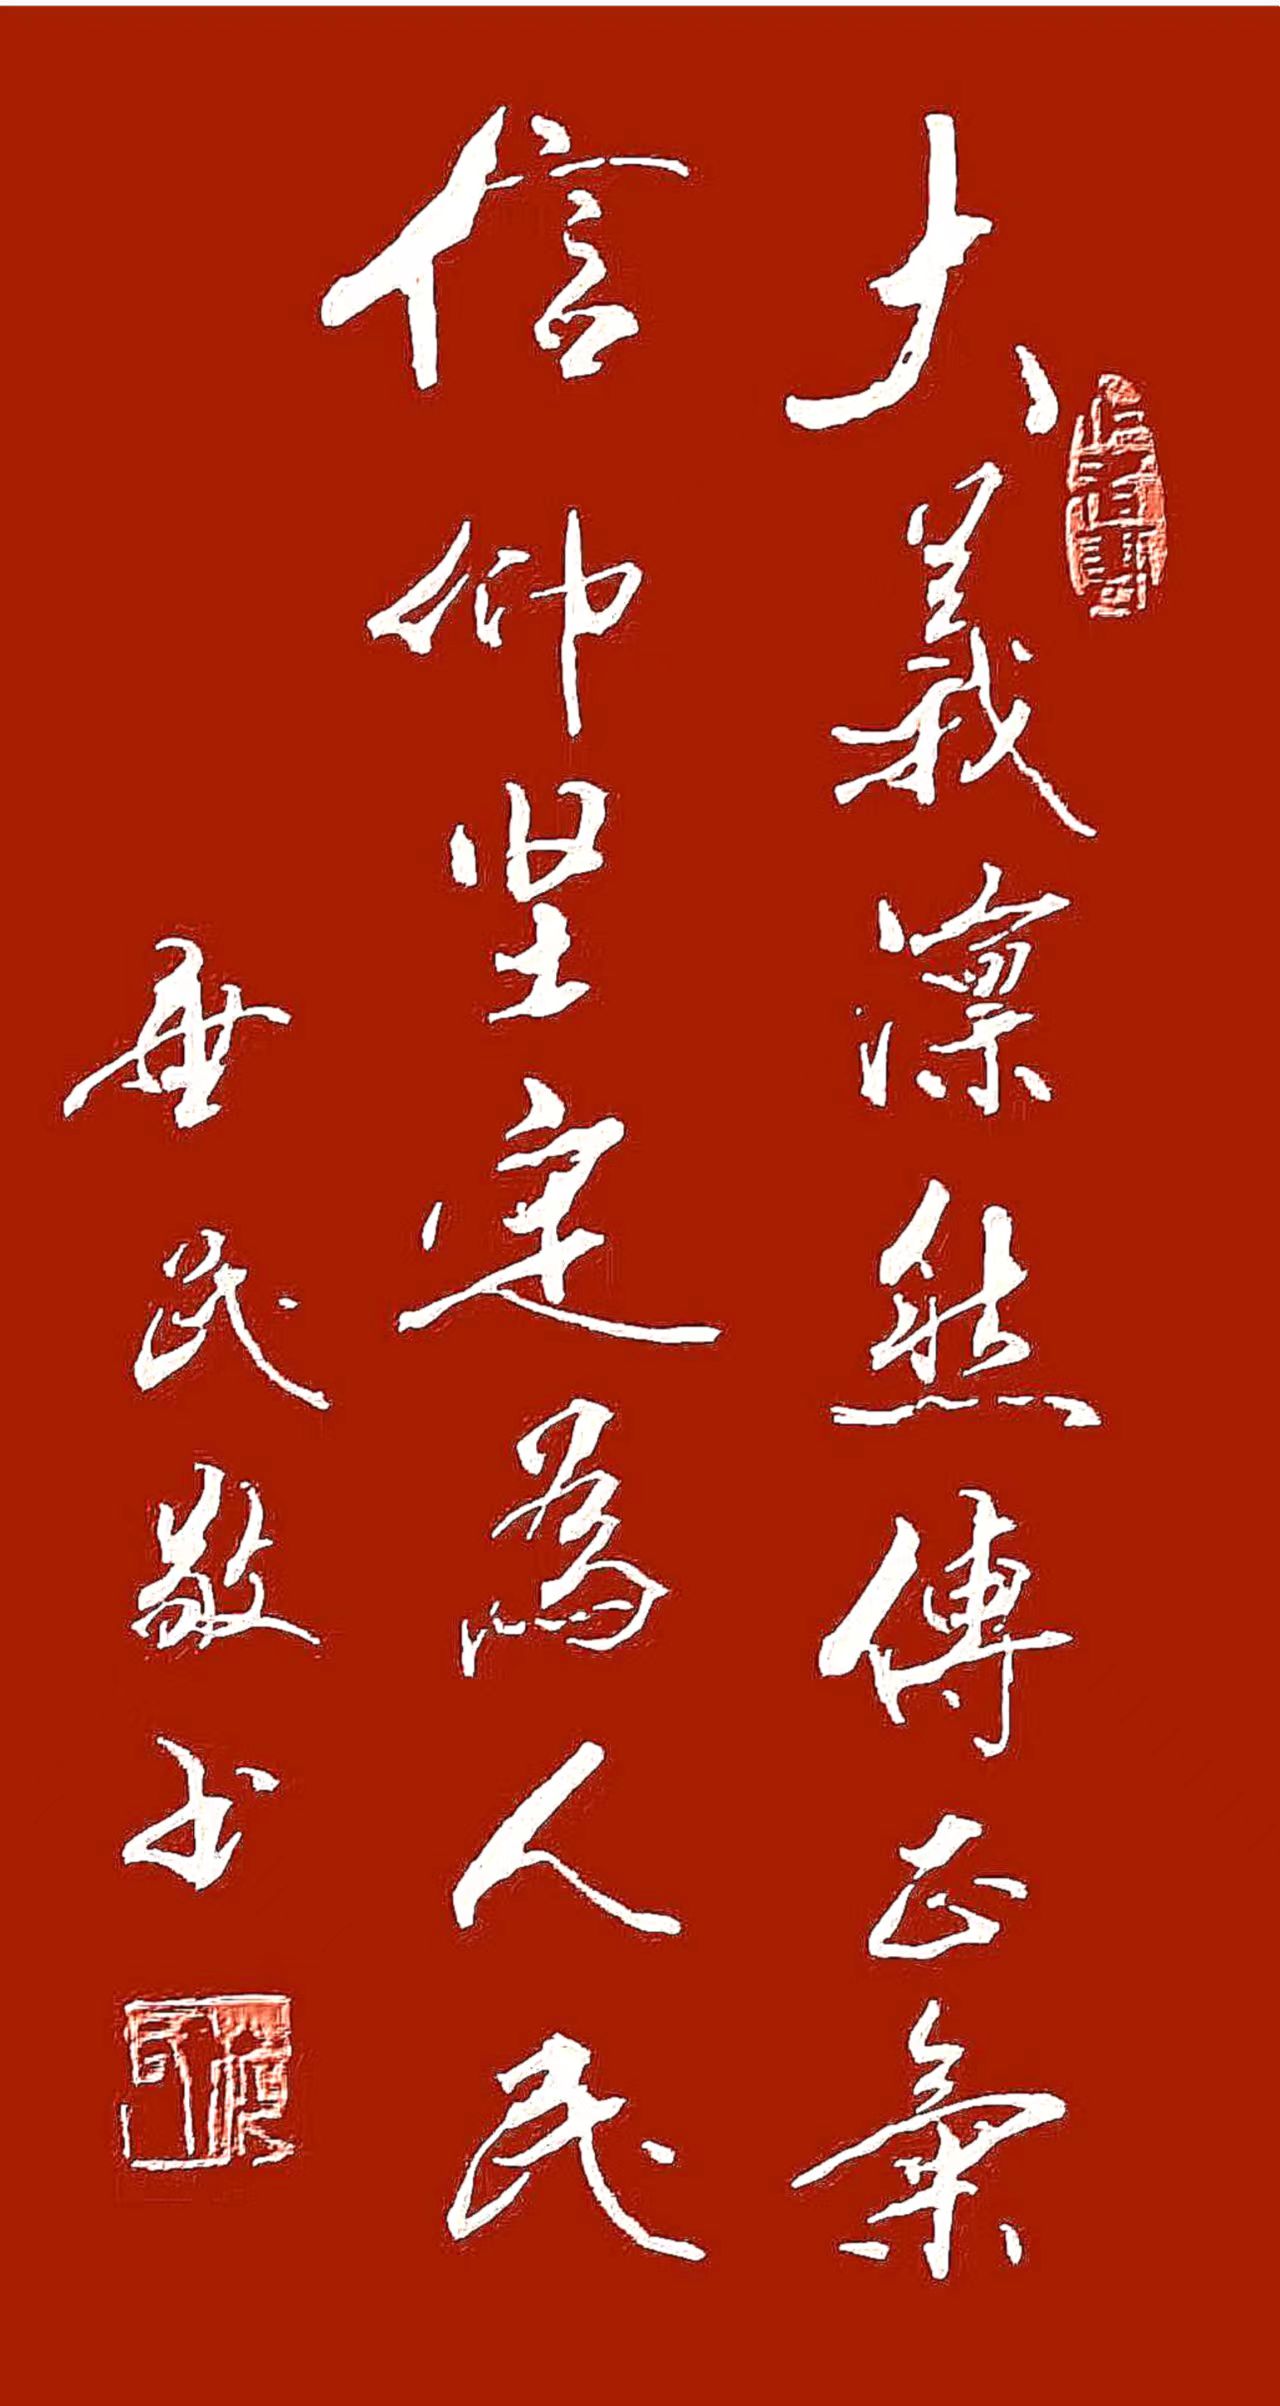 大義凛然傳正氣
信仰坚定為人民
民敬书